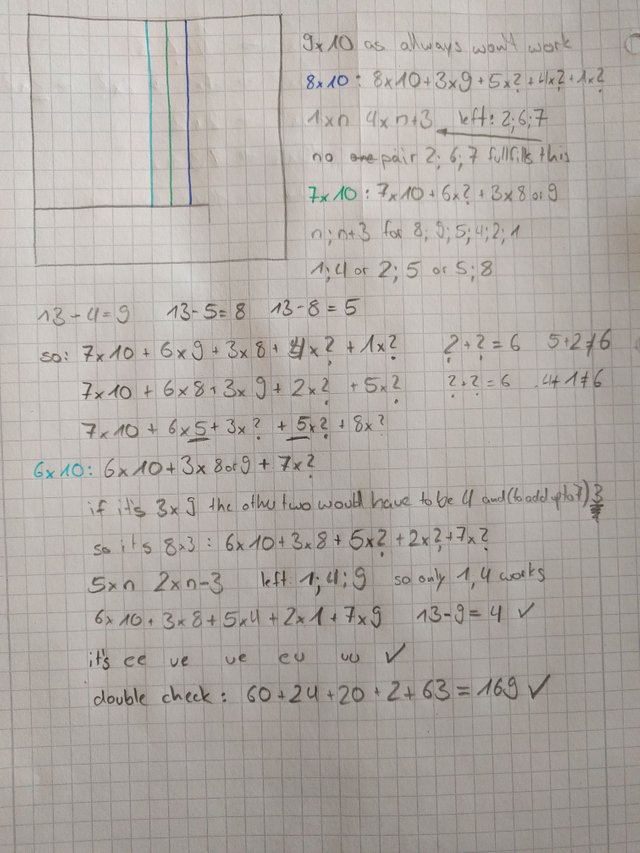 9x10 as allways won't work
8x10: 8x10+3x9+5x?+4x?+1x?
1xn 4xn+3 left: 2;6;7
no pair 2;6;7 fullfills this
7x10: 7x10+6x?+3x8or9
n;n+3 for 8;9;5;4;2;1
1;4 or 2;5 or 5;8
13-4=9 13-5=8 13-8=5
so: 7x10+6x9+3x8+4x?+1x? ?+?=6 5+2≠6
7x10+6x8+3x9+2x?+5x? ?+?=6 4+1≠6
7x10+6x5+3x?+5x?+8x?
6x10: 6x10+3x8or9+7x?
if it's 3x9 the other two would have to be 4 and (to add up to 7) 3
so it's 8x3: 6x10+3x8+5x?+2x?+7x?
5xn 2xn-3 left 1;4;9 so only 1,4 works
6x10+3x8+5x4+2x1+7x9 13-9=4 ✓
it's ee ue ue eu uu ✓
double check: 60+24+20+2+63=169 ✓